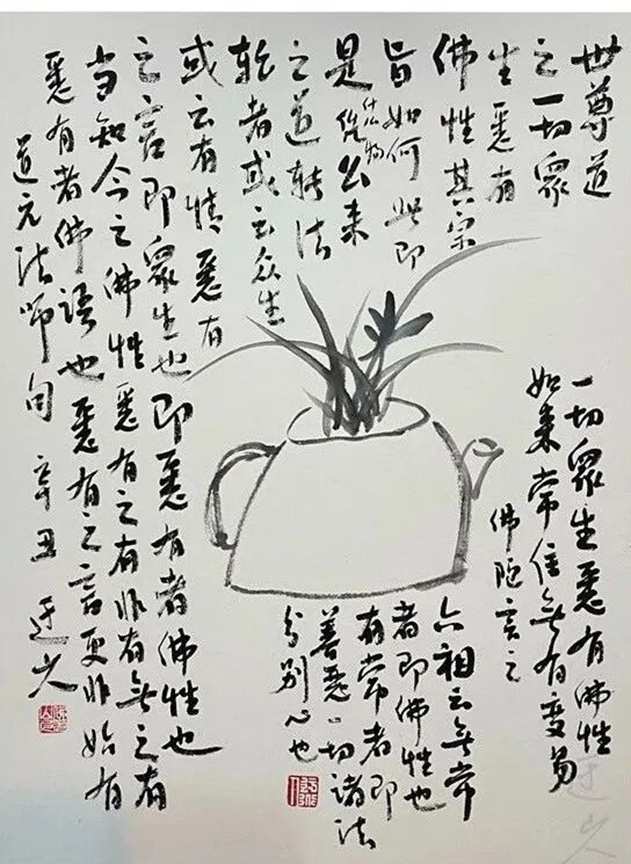 世尊道
之一切衆
生悉有
佛性其宗
旨如何此即
是什么物恁么来
之道转法
轮者或云众生
或云有情悉有
之言即衆生也即悉有者佛性也
当知今之佛性悉有之有非有無之有
悉有者佛语也悉有之言更非始有
道元法师句 辛丑
一切衆生悉有佛性
如来常住無有变易
佛陀言之
六祖云無常
者即佛性也
有常者即
善恶一切诸法
分别心也